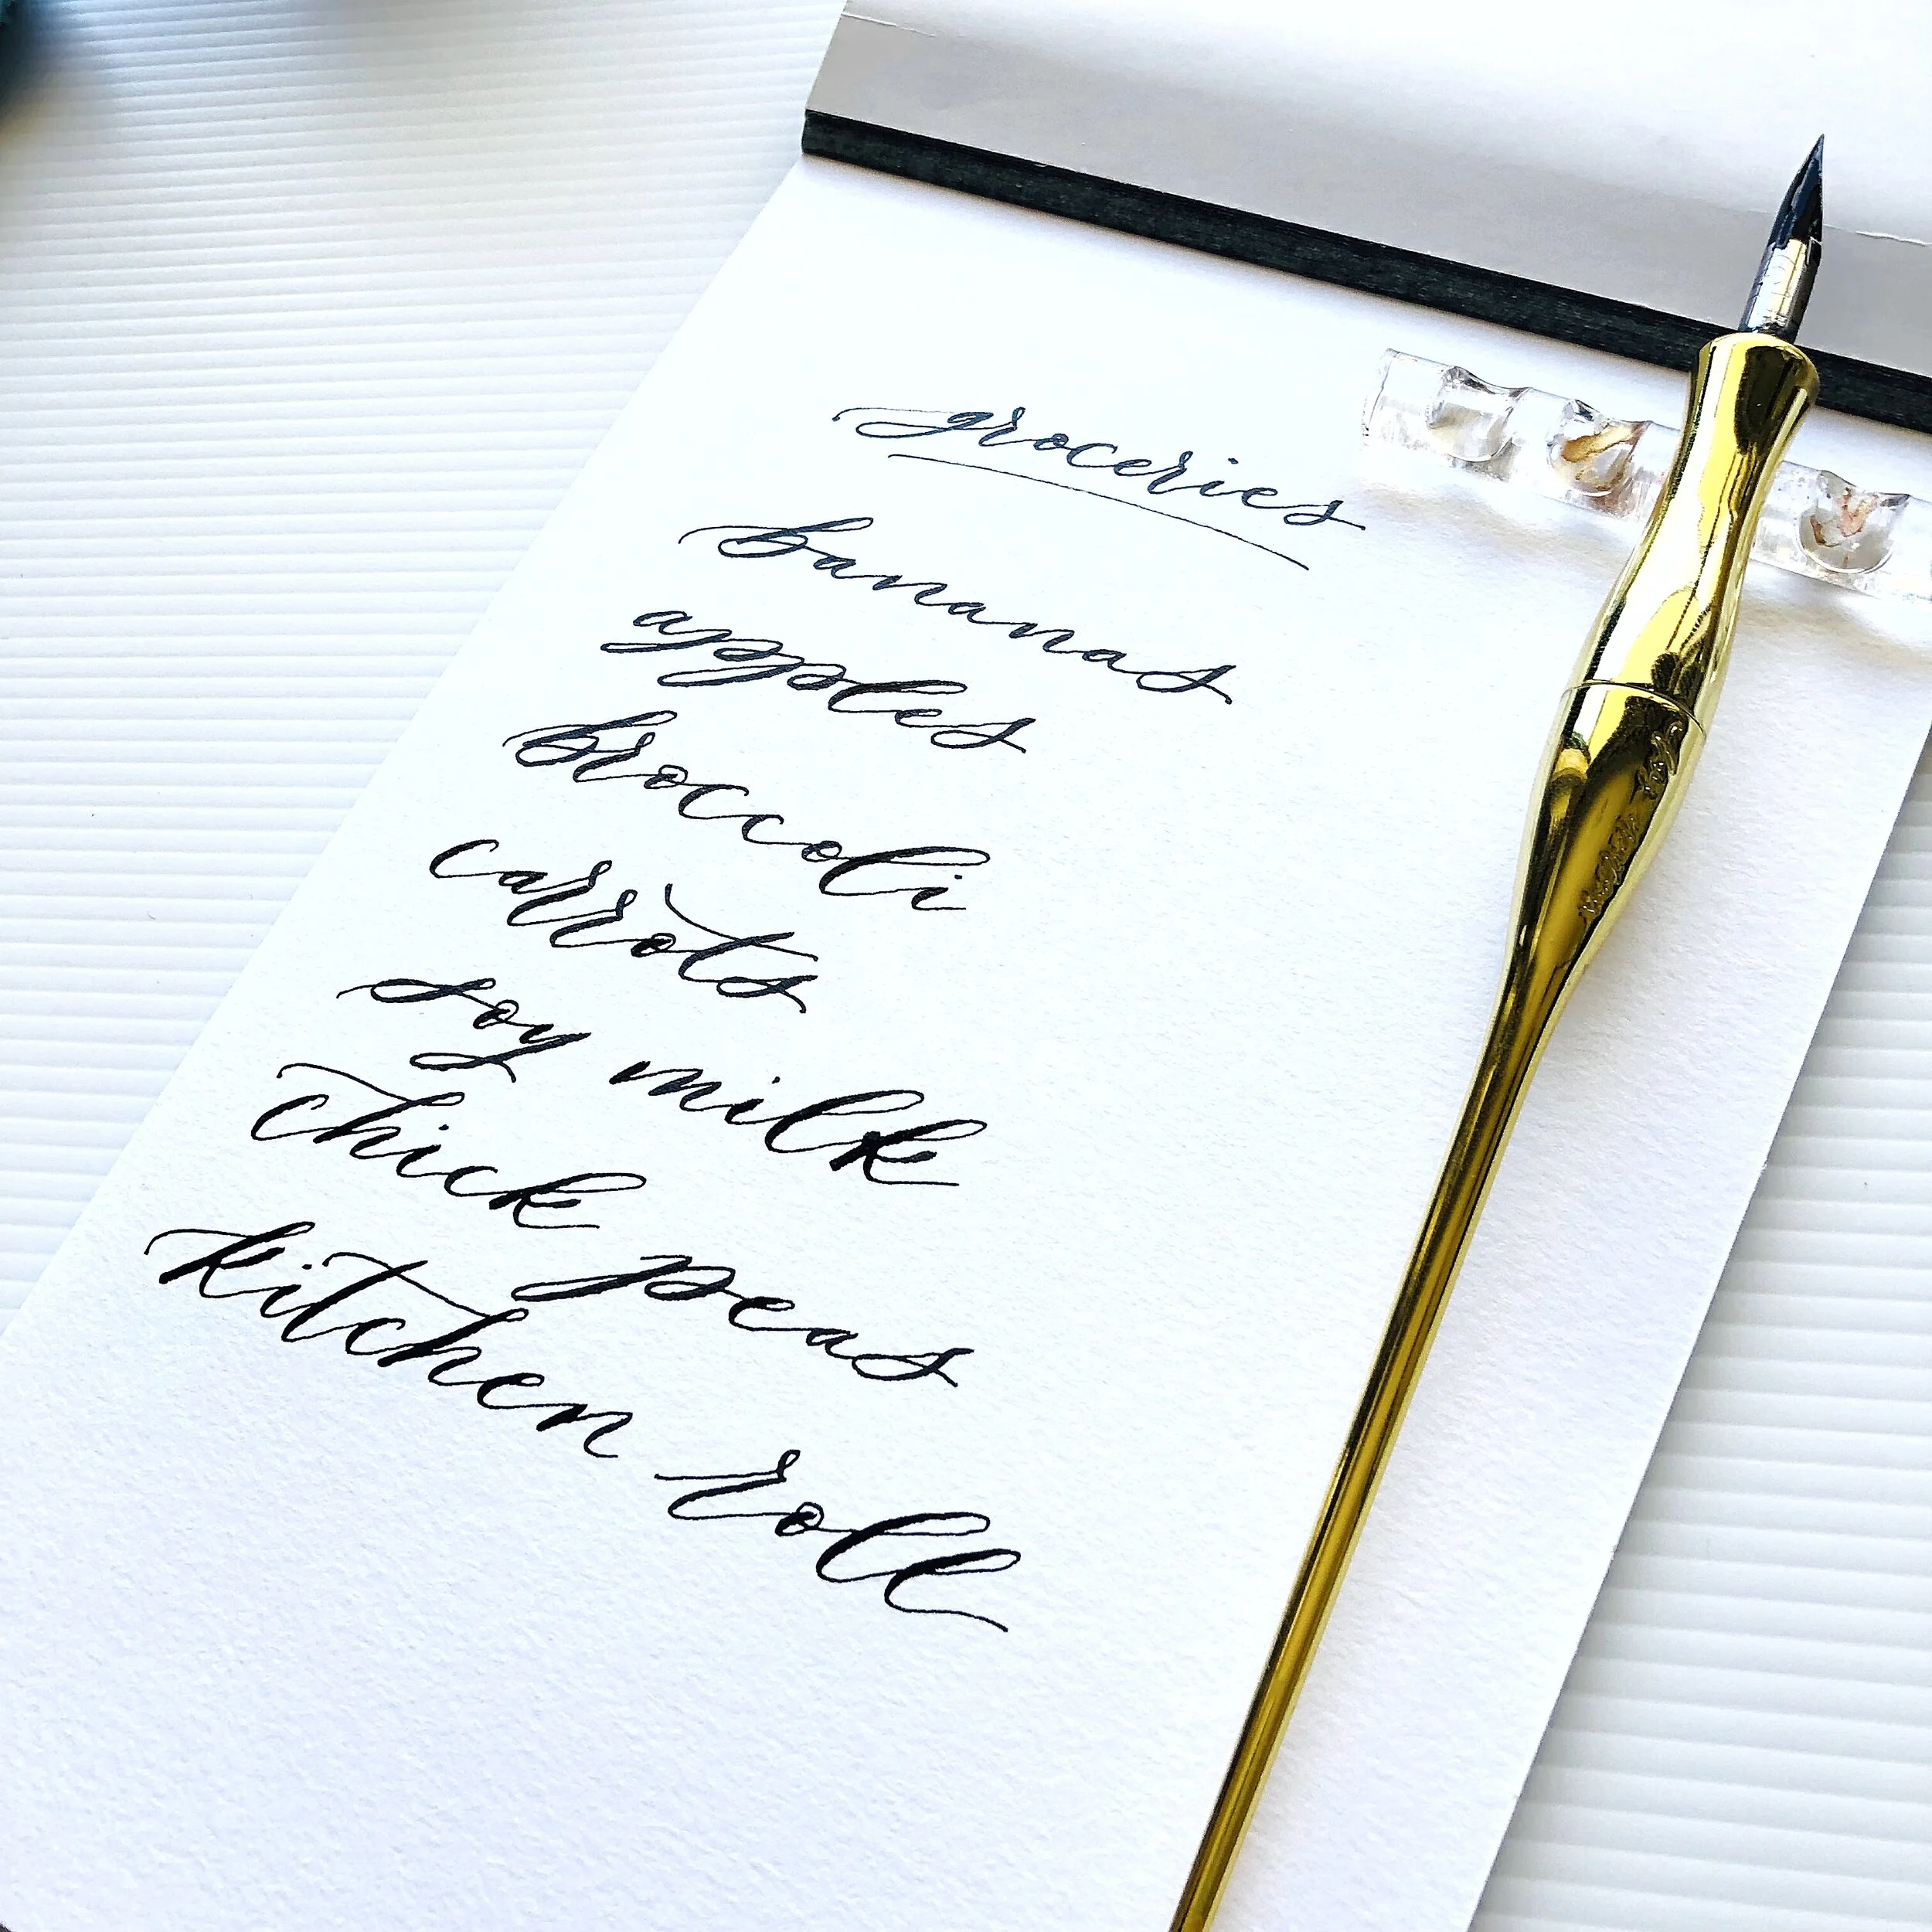 groceries
bananas
apples
broccoli
carrots
soy milk
chick peas
kitchen roll